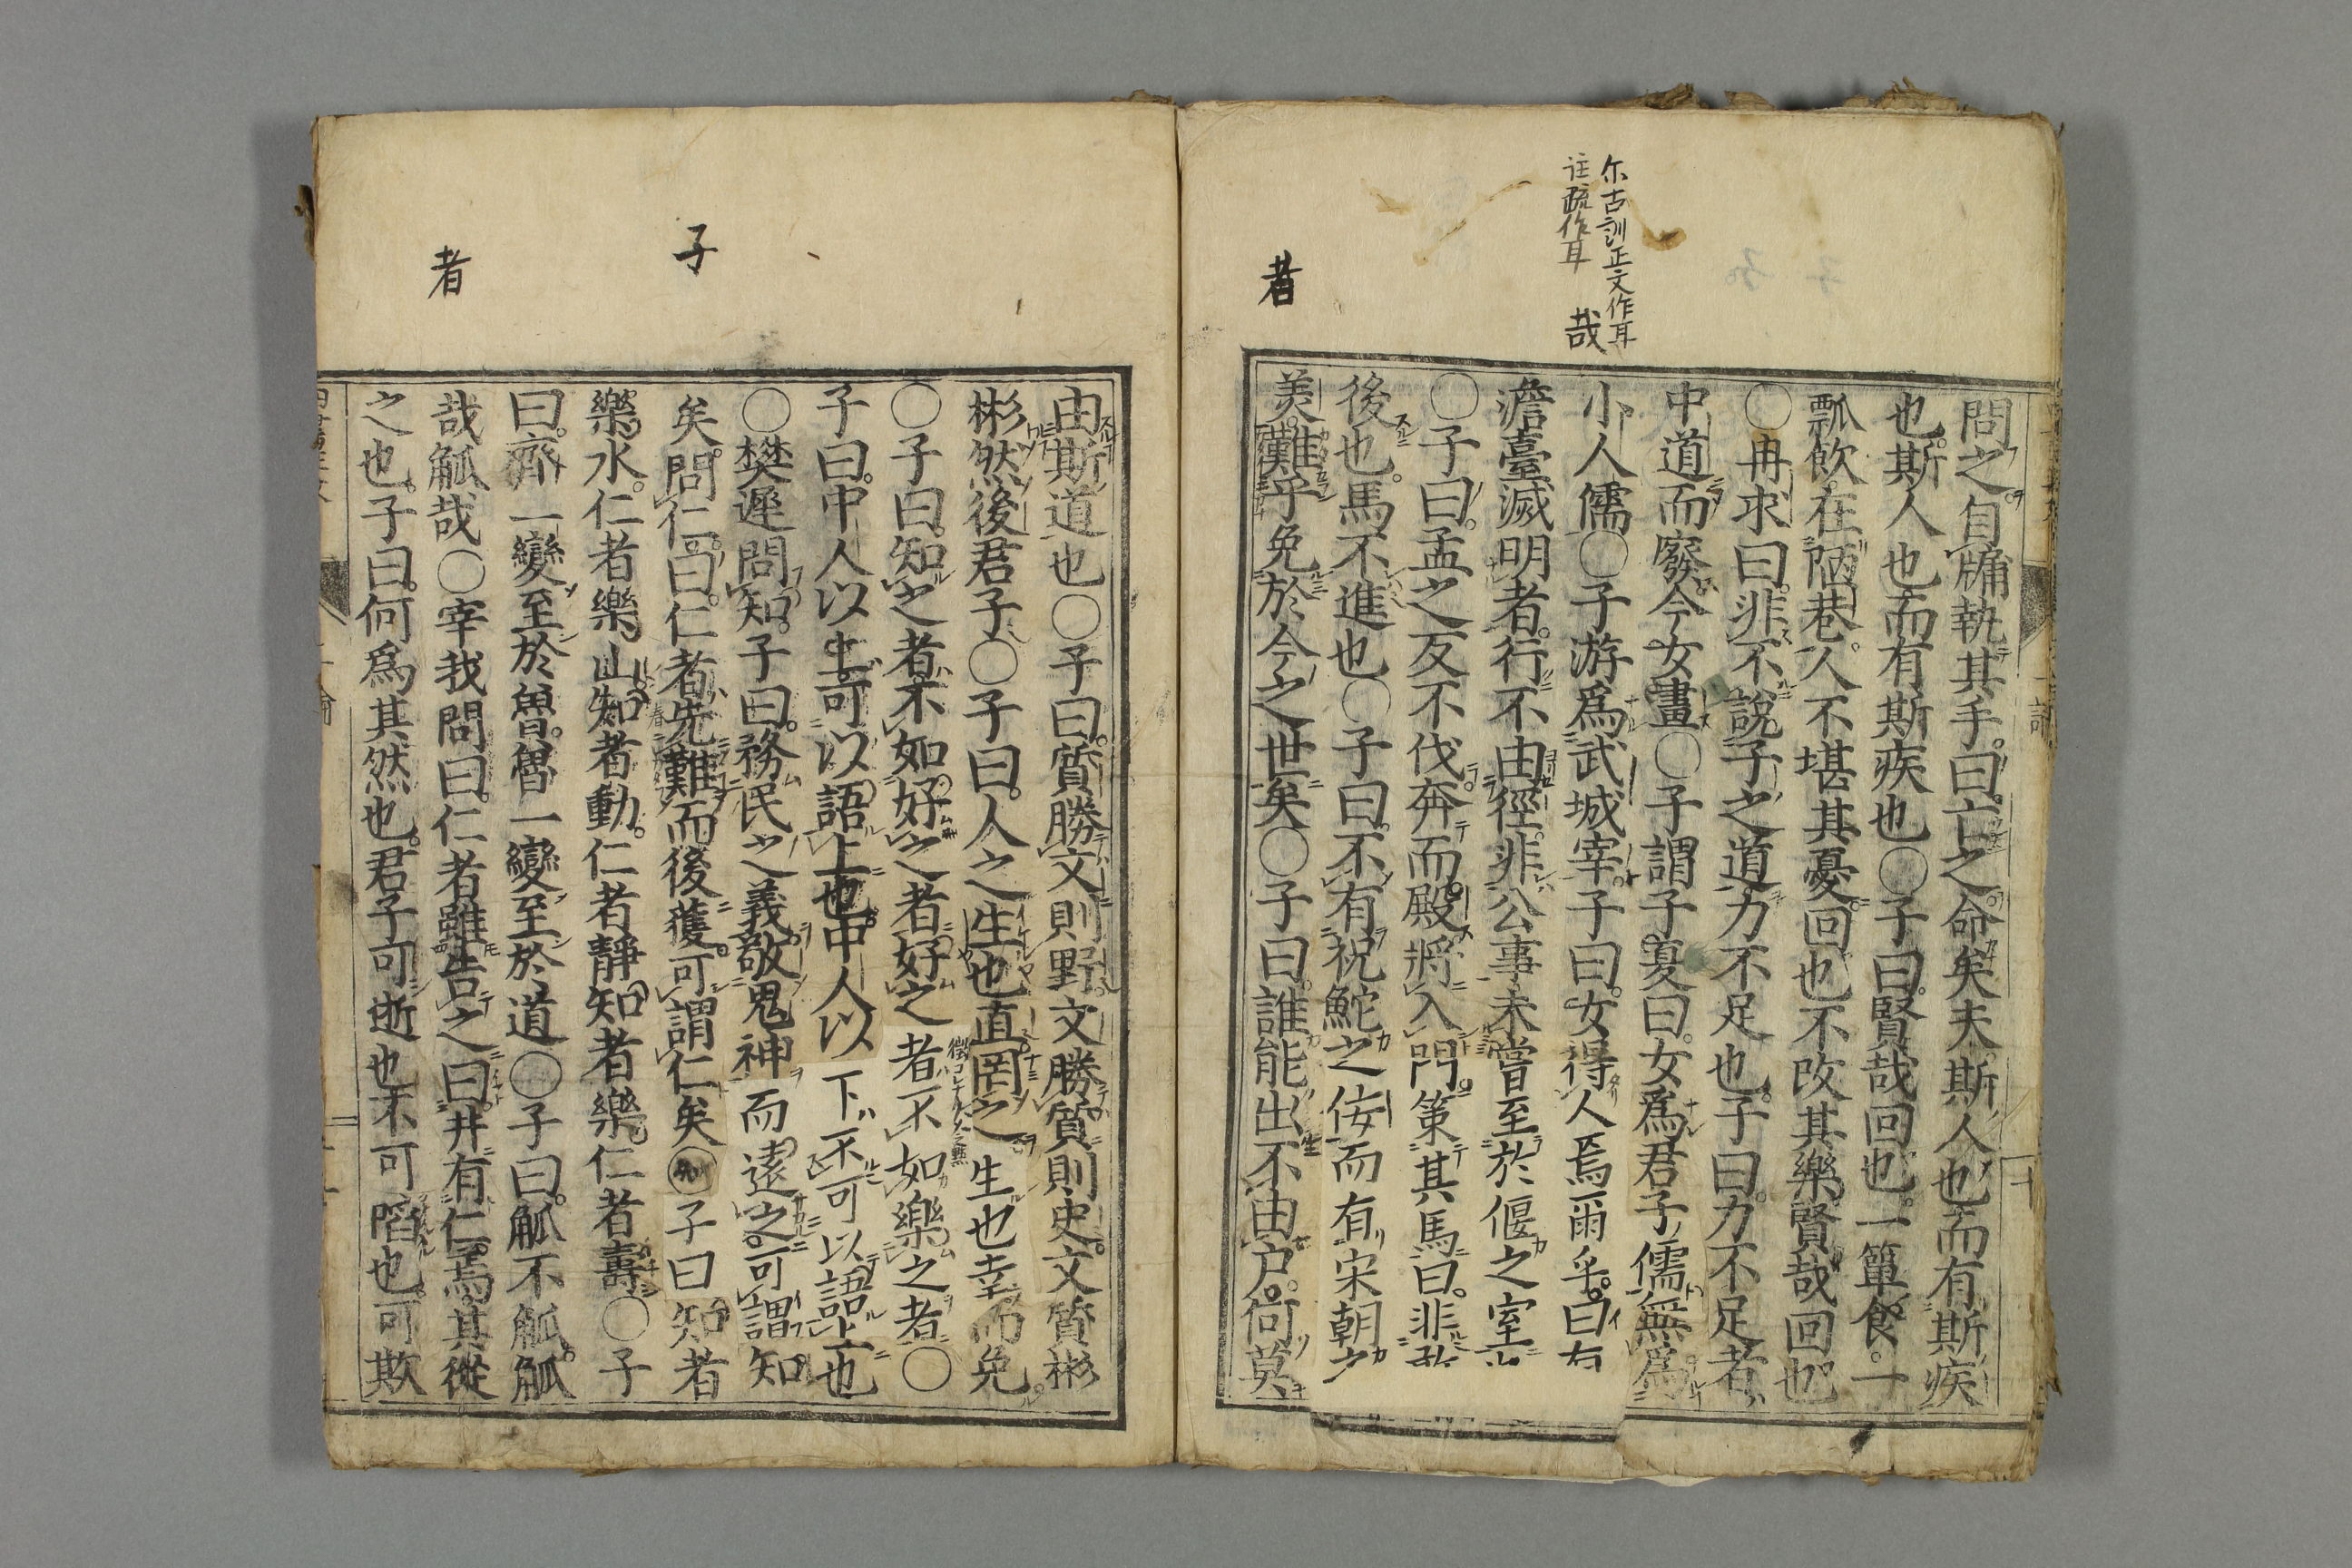 尓古訓正文作耳
註疏作耳 哉
者
問之自牖執其手曰亡之命矣夫斯人也而有斯疾
也斯人也而有斯疾也〇子曰賢哉回也一簞食一
瓢飲在陋巷人不堪其憂回也不改其樂賢哉回也
〇冉求曰非不說子之道力不足也子曰力不足者
中道而廢今女畫〇子謂子夏曰女爲君子儒無爲
小人儒〇子游爲武城宰子曰女得人焉爾乎曰有
澹臺滅明者行不由徑非公事未嘗至於偃之室
〇子曰孟之反不伐奔而殿將入門策其馬曰非敢
後也馬不進也〇子曰不有祝鮀之佞而有宋朝之
美難乎免於今之世矣〇子曰誰能出不由戶何莫
子
者
由斯道也〇子曰質勝文則野文勝質則史文質彬
彬然後君子〇子曰人之生也直罔之生也幸而免
〇子曰知之者不如好之者好之者不如樂之者〇
子曰中人以上可以語上也中人以下不可以語上也
〇樊遲問知子曰務民之義敬鬼神而遠之可謂知
矣問仁曰仁者先難而後獲可謂仁矣〇子曰知者
樂水仁者樂山知者動仁者靜知者樂仁者壽〇子
曰齊一變至於魯魯一變至於道〇子曰觚不觚觚
哉觚哉〇宰我問曰仁者雖告之曰井有仁焉其從
之也子曰何爲其然也君子可逝也不可陷也可欺